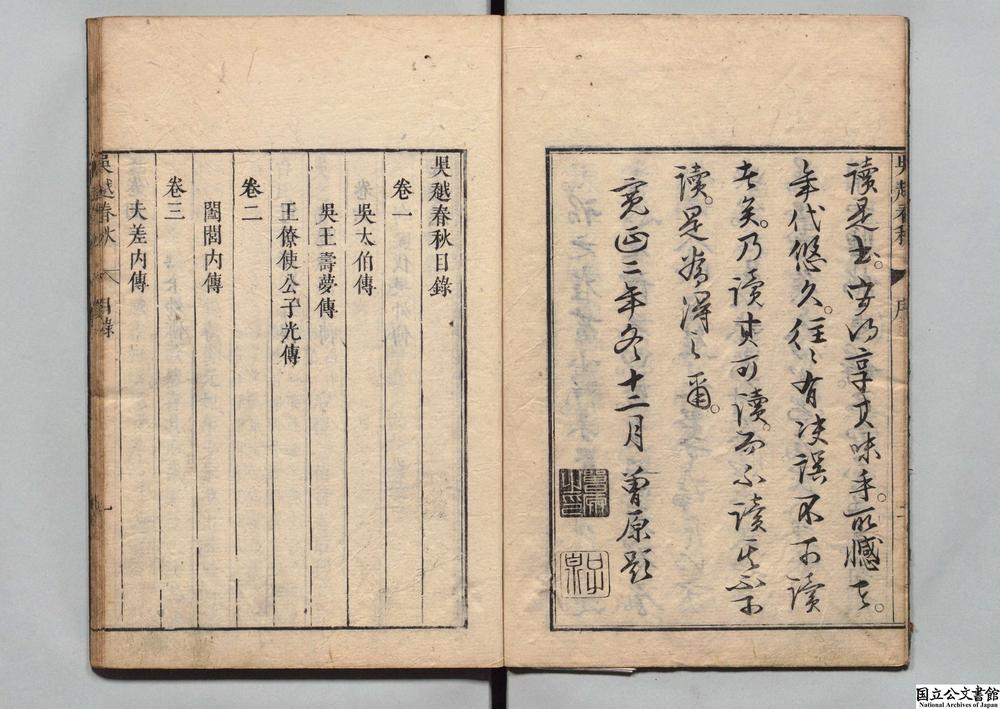 讀是書。安得享其味乎。所憾者。
年代悠久。往々有決誤不可讀
者矣。乃讀其可讀。而不讀其不可
讀。是為得之爾。
寛政二年冬十二月曾原題
吳越春秋 序
吳越春秋目錄
卷一
吳太伯傳
吳王壽夢傳
王僚使公子光傳
卷二
闔閭內傳
卷三
夫差內傳
吳越春秋 目錄 一
国立公文書館
National Archives of Japan